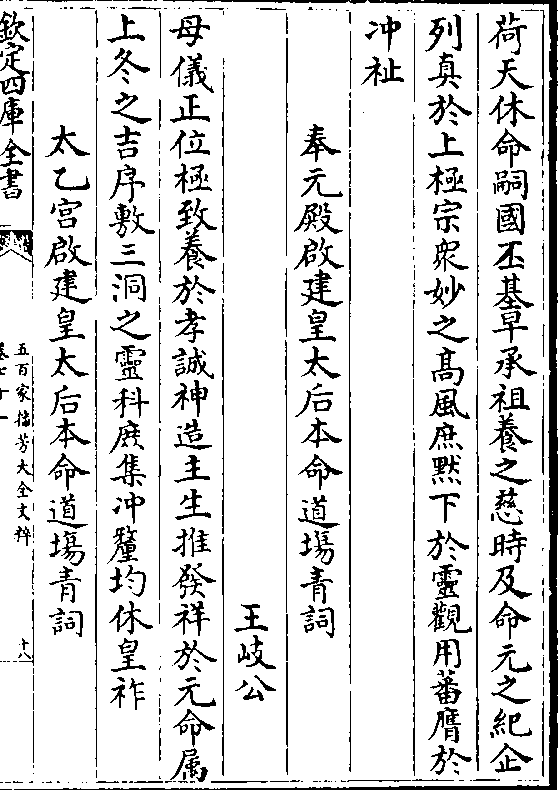 荷天休命嗣國丕基早承祖養之慈時及命元之紀企
列真於上極宗衆妙之髙風庶黙下於靈觀用蕃膺於
冲祉
奉元殿啟建皇太后本命道塲青詞
王岐公
母儀正位極致養於孝誠神造主生推發祥於元命属
上冬之吉序敷三洞之靈科庻集冲釐均休皇祚
太乙宫啟建皇太后本命道塲青詞
欽定四庫全書
五百家播芳大全文粹
卷七十一
十八